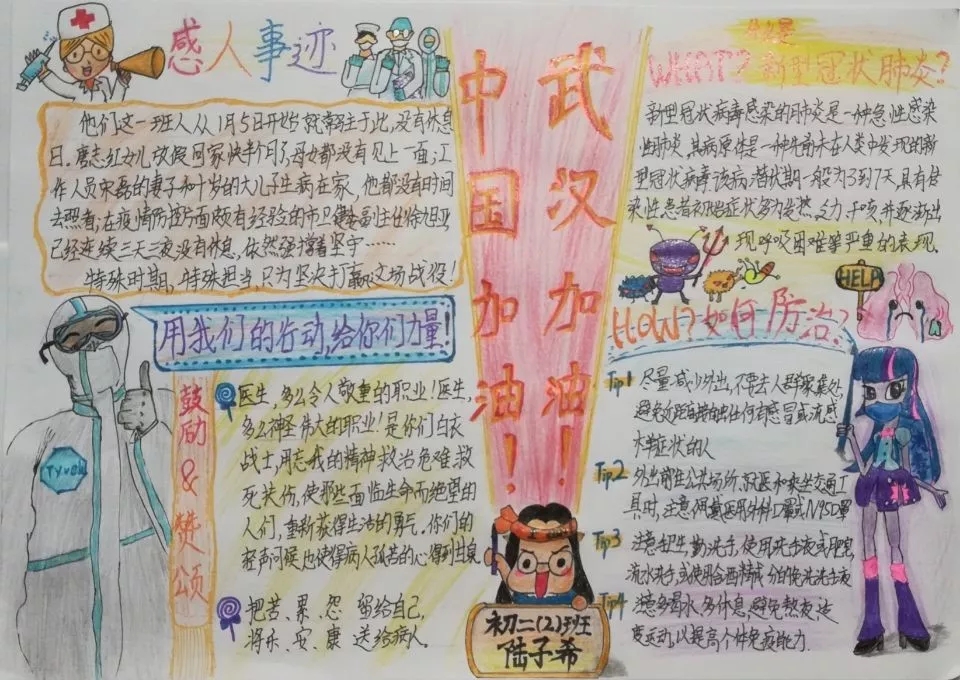 感人事迹
他们这一班人从1月5日开始就常驻于此,没有休息
日。唐志红女儿放假回家快半个月了,母女都没有见上一面;工
作人员宋磊的妻子和十岁的大儿子生病在家,他都没有时间
去照看;在疫情防控方面颇有经验的市卫健委副主任徐旭亚
已经连续三天三夜没有休息,依然强撑着坚守……
特殊时期,特殊担当,只为坚决打赢这场战役!
用我们的行动,给你们力量!
Tyvek
鼓励&赞颂
医生,多么令人敬重的职业!医生,
多么神圣伟大的职业!是你们白衣
战士,用忘我的精神救治危难,救
死扶伤,使那些面临生命而绝望的
人们,重新获得生活的勇气。你们的
轻声问候也使得病人孤苦的心得到甘泉
把苦、累、怨 留给自己,
将乐、安、康 送给病人。
中国加油!
武汉加油!
初二(2)班
陆子希
什么是
WHAT?新型冠状肺炎?
新型冠状病毒感染的肺炎是一种急性感染
性肺炎,其病原体是一种先前未在人类中发现的新
型冠状病毒,该病潜伏期一般为3到7天,具有传
染性,患者初始症状多为发热、乏力、干咳,并逐渐出
现呼吸困难等严重的表现。
HELP
HOW?如何防治?
Tip1 尽量减少外出,不要去人群聚集处
避免近距离接触任何有感冒或流感
症状的人
Tip2 外出前往公共场所、就医和乘坐交通工
具时,注意佩戴医用外科口罩或N95口罩
Tip3 注意卫生,勤洗手,使用洗手液或肥皂,
流水洗手,或使用含酒精成分的免洗洗手液
Tip4 注意多喝水,多休息,避免熬夜,适
度运动,以提高个体免疫能力.